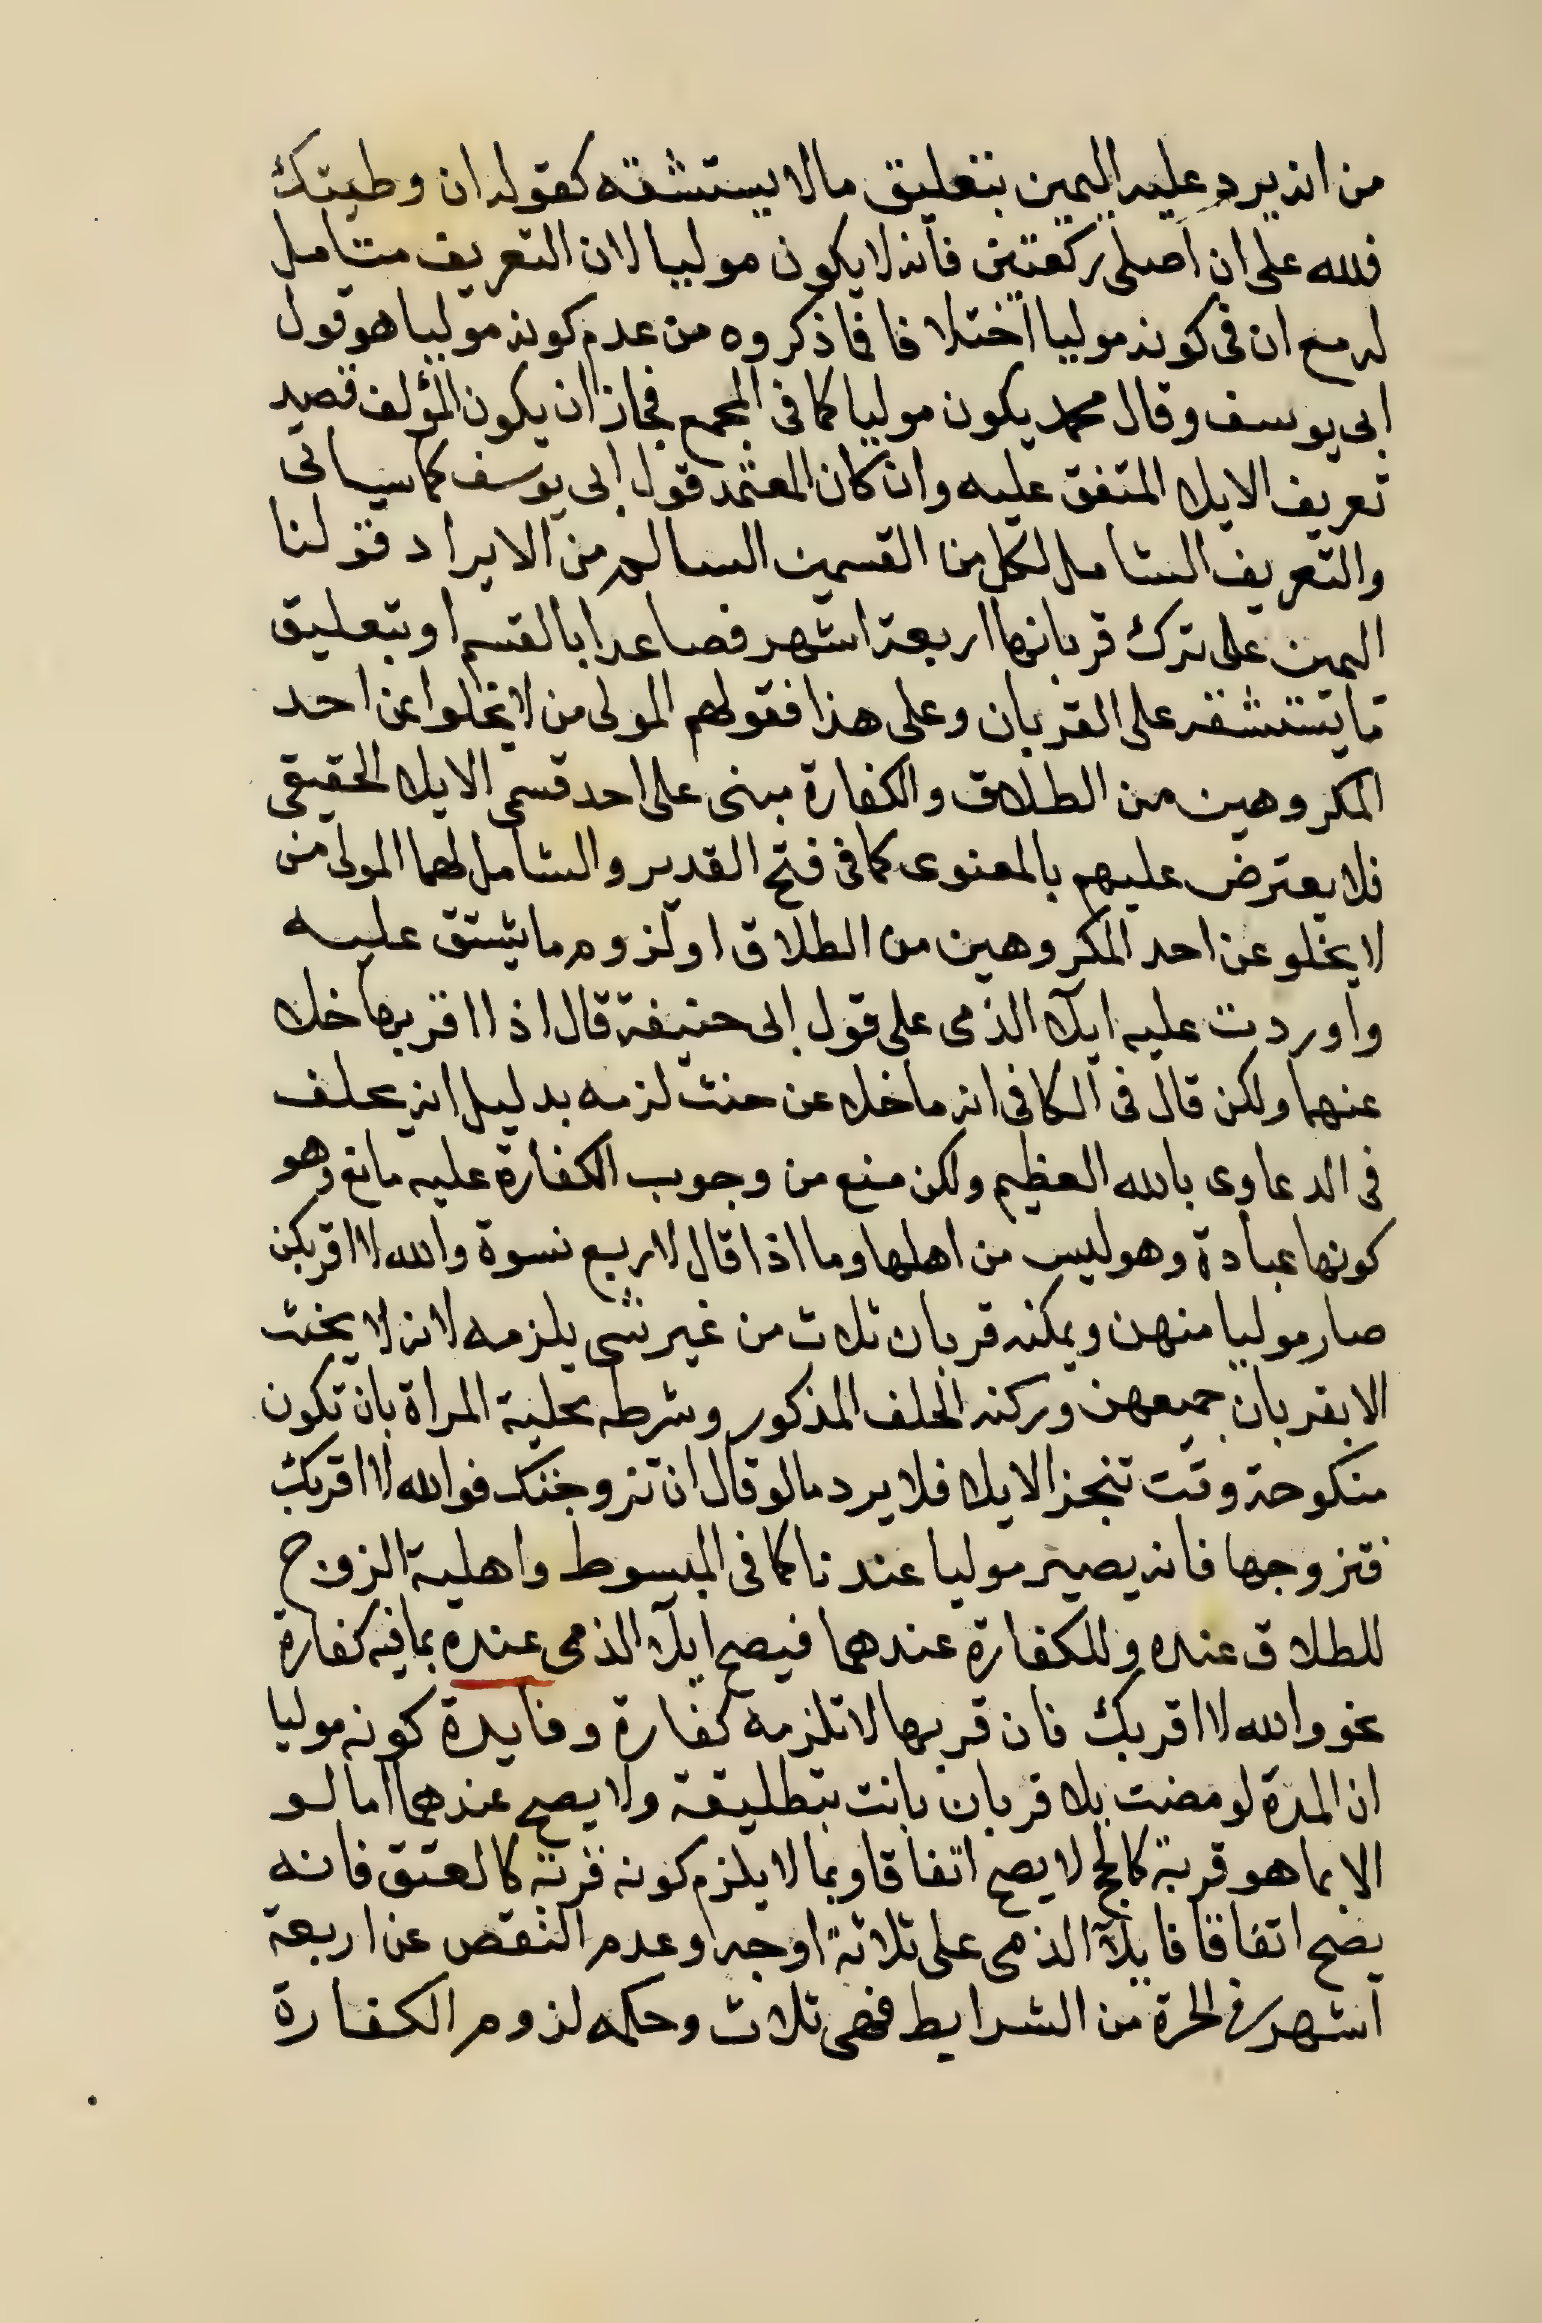 من انه يرد عليه اليمين بتعليق ما لا يستشقه كقوله ان وطيتك
فلله على ان اصلى ركعتين فانه لا يكون موليا لان التعريف متامل
له مع ان فى كونه موليا اختلافا فما ذكروه من عدم كونه موليا هو قول
ابى يوسف وقال محمد يكون موليا كما فى المجمع فجاز ان يكون المؤلف قصد
تعريف الايلا المتفق عليه وان كان المعتمد قول ابى يوسف كما سياتى
والتعريف الشامل لكل من القسمين السالم من الايراد قولنا
اليمين على ترك قربانها اربعة اشهر فصاعدا بالقسم او بتعليق
ما يستشقه على القربان وعلى هذا فقولهم المولى من لا يخلوا عن احد
المكروهين من الطلاق والكفارة مبنى على احد قسمى الايلا الحقيقى
فلا يعترض عليهم بالمعنوى كما فى فتح القدير والشامل لهما المولى من
لا يخلو عن احد المكروهين من الطلاق او لزوم ما يشتق عليه
واوردت عليه ايلآ الذمى على قول ابى حنيفة قال اذا اقربها خلا
عنهما ولكن قال فى الكافى انه ما خلا عن حنث لزمه بدليل انه يحلف
فى الدعاوى بالله العظيم ولكن منع من وجوب الكفارة عليه مانع وهو
كونها عبادة وهو ليس من اهلها وما اذا قال لاربع نسوة والله لا اقربكن
صار موليا منهن ويمكنه قربان ثلاث من غير شى يلزمه لانه لا يحنث
الا بقربان جميعهن وركنه الحلف المذكور وشرطه محلية المراة بان تكون
منكوحة وقت تنجز الايلا فلا يرد ما لو قال ان تزوجتك فوالله لا اقربك
فتزوجها فانه يصير موليا عندنا كما فى المبسوط واهلية الزوج
للطلاق عنده وللكفارة عندهما فيصح ايلآ الذمى عنده بما فيه كفارة
نحو والله لا اقربك فان قربها لا تلزمه كفارة وفايدة كونه موليا
ان المدة لو مضت بلا قربان بانت بتطليقة ولا يصح عندهما اما لو
الا بما هو قربة كالحج لا يصح اتفاقا وبما لا يلزم كونه قربة كالعتق فانه
يصح اتفاقا فايلآ الذمى على ثلاثة اوجه وعدم النقص عن اربعة
اشهر فى الحرة من الشرايط فهى ثلاث وحكمه لزوم الكفارة